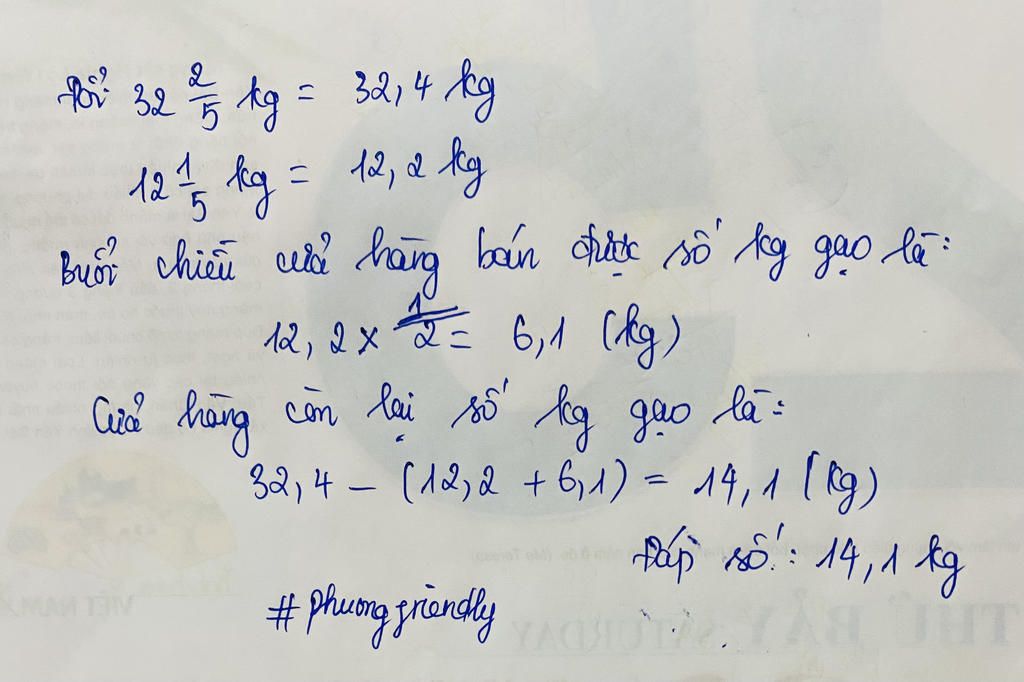 Đổi 32 2/5 kg = 32,4 kg
12 1/5 kg = 12,2 kg
Buổi chiều cửa hàng bán được số kg gạo là:
12,2 x 1/2 = 6,1 (kg)
Cửa hàng còn lại số kg gạo là:
32,4 - (12,2 + 6,1) = 14,1 (kg)
Đáp số: 14,1 kg
# phuongfriendly
VIỆT NAM
THỨ BẢY SATURDAY